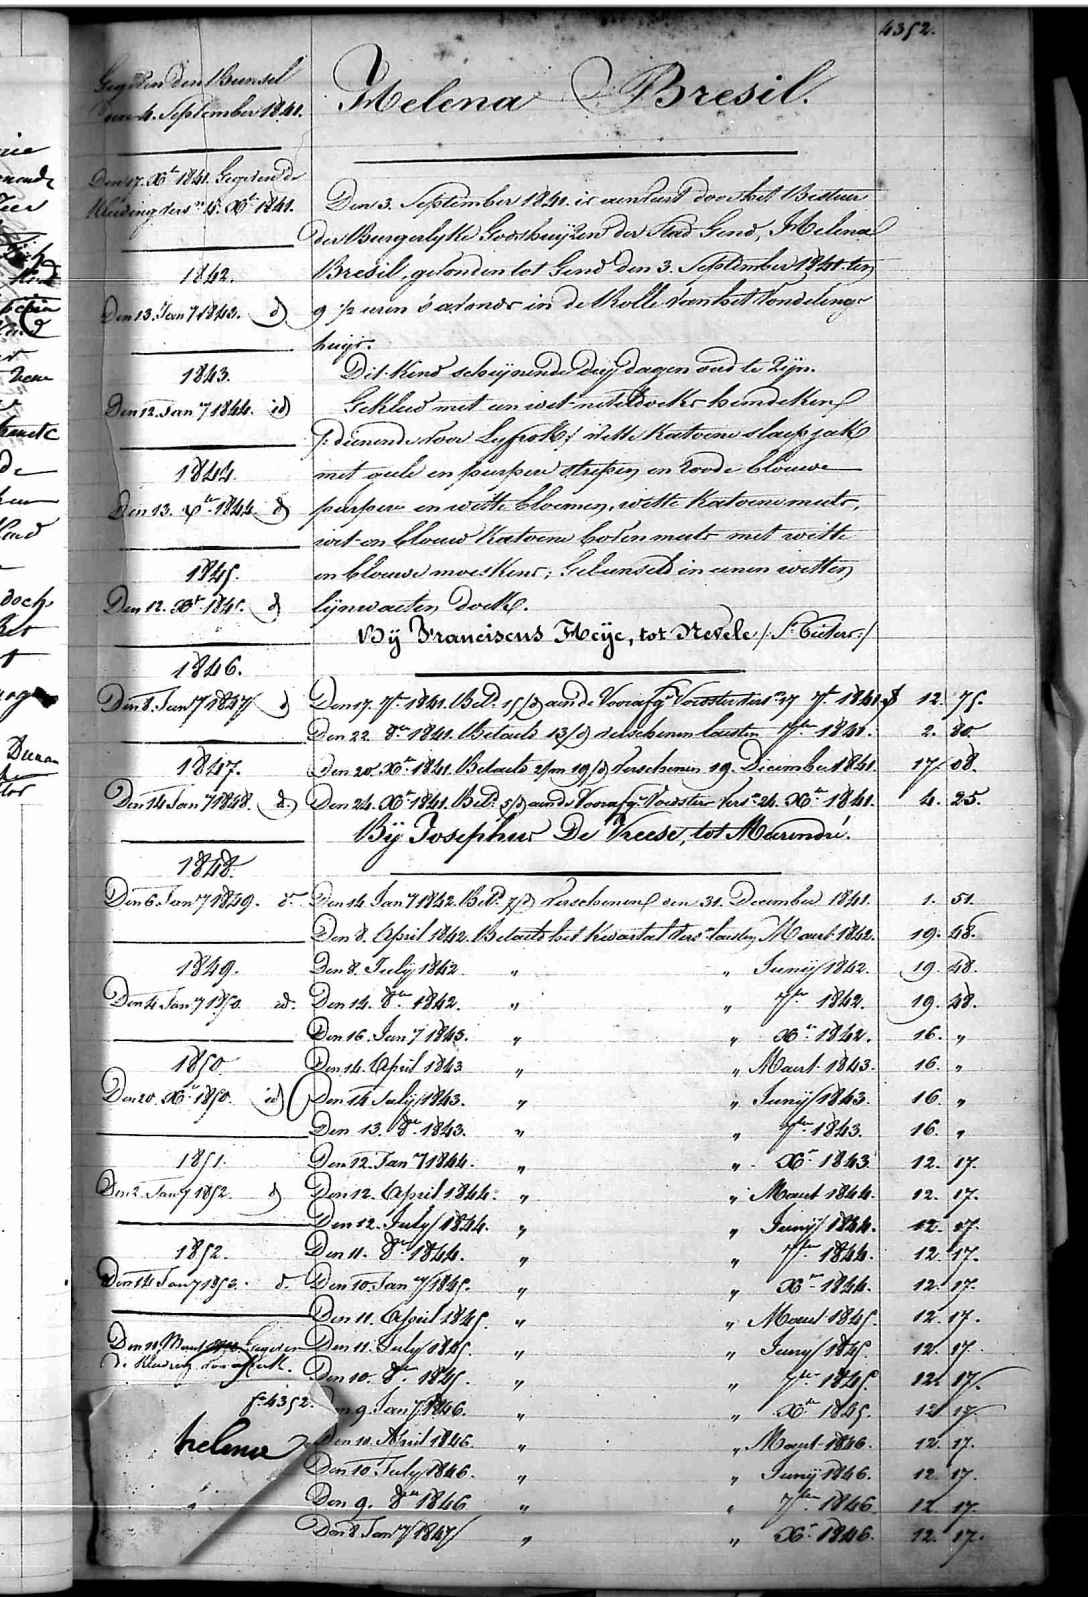 4352.
Helena Bresil.
Gegeven den Bunsel
den 4. September 1841.
Den 17. Xbr 1841. Gegeven de
Kleeding vers. 15. Xbr 1841.
1842.
Den 13. Jany 1843. id
1843.
Den 12. Jany 1844. id
1844.
Den 13. Xbr 1844. id
1845.
Den 12. Xbr 1845. id
1846.
Den 8. Jany 1847 id
1847.
Den 14 Jany 1848. id.
1848.
Den 6. Jany 1849. id.
1849.
Den 4 Jany 1850. id.
1850.
Den 20. Xbr 1850. id
1851.
Den 2. Jany 1852. id
1852.
Den 14 Jany 1853. id.
Den 11 Maert Gegeven
de Kleeding
Den 3. September 1841. is aenveird door het Bestuer
der Burgerlyke Godshuyzen der Stad Gend, Helena
Bresil, gevonden tot Gend den 3. September 1841. ten
9 1/2 uren s'avonds in de Rolle van het Vondeling-
huys.
Dit Kind schynende dry dagen oud te zyn.
Gekleed met een wit netteldoeks hemdeken
/: dienende voor Lyfrok :/ witte Katoene slaepjak
met geele en purpere strepen en roode blauwe
purpere en witte bloemen, witte Katoene muts,
wit en blauw Katoene bovenmuts met witte
en blauwe moeskens; Gebunseld in eenen witten
lynwaeten doek.
Bÿ Franciscus Heÿe, tot Nevele /: St Pieters :/
Den 17. 7br 1841. Bet. 15/d aen de Voorafg. Voedster vers. 17 7br 1841. f 12. 75.
Den 22. 8br 1841. Betaeld 13/d verschenen laesten 7ber 1841. 2. 80.
Den 20. Xbr 1841. Betaeld 2/m 19/d verschenen 19. December 1841. 17. 08.
Den 24. Xbr 1841. Bet. 5/d aen de Voorafg. Voedster vers. 24. Xbr 1841. 4. 25.
Bÿ Josephus De Vreese, tot Merendré.
Den 14. Jany 1842. Bet. 7/d verschenen den 31. December 1841. 1. 51.
Den 8. April 1842. Betaeld het Kwartael vers. laesten Maert 1842. 19. 48.
Den 8. July 1842. " " Juny 1842. 19. 48.
Den 14. 8br 1842. " " 7br 1842. 19. 48.
Den 16. Jany 1843. " " Xbr 1842. 16. "
Den 14. April 1843 " " Maert 1843. 16. "
Den 14 July 1843. " " Juny 1843. 16. "
Den 13. 8br 1843. " " 7br 1843. 16. "
Den 12. Jany 1844. " " Xbr 1843. 12. 17.
Den 12. April 1844. " " Maert 1844. 12. 17.
Den 12. July 1844. " " Juny 1844. 12. 17.
Den 11. 8br 1844. " " 7br 1844. 12. 17.
Den 10. Jany 1845. " " Xbr 1844. 12. 17.
Den 11. April 1845. " " Maert 1845. 12. 17.
Den 11. July 1845. " " Juny 1845. 12. 17.
Den 10. 8br 1845. " " 7br 1845. 12. 17.
9. Jany 1846. " " Xbr 1845. 12 17.
Den 10. April 1846. " " Maert 1846. 12. 17.
Den 10. July 1846. " " Juny 1846. 12. 17.
Den 9. 8br 1846 " " 7br 1846 12. 17.
Den 8 Jany 1847 " " Xbr 1846. 12. 17.
fo 4352.
helena